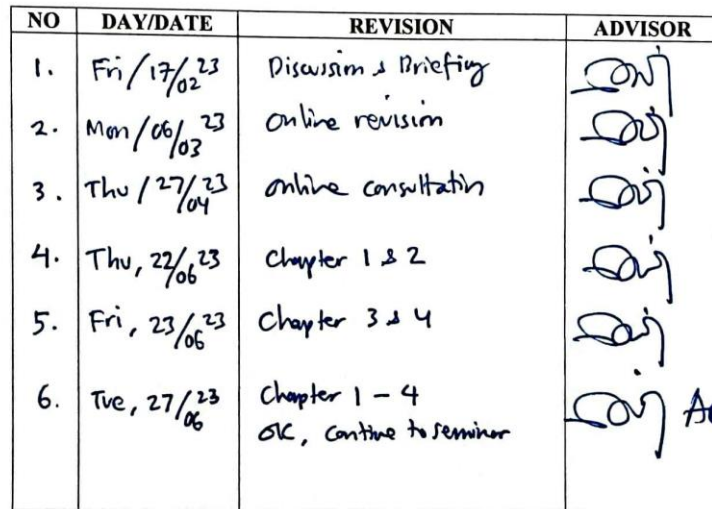 NO DAY/DATE REVISION ADVISOR
1. Fri/17/02 23 Discussion & Briefing
2. Mon/06/03 23 Online revision
3. Thu/27/04 23 online consultatin
4. Thu, 22/06 23 Chapter 1 & 2
5. Fri, 23/06 23 Chapter 3 & 4
6. Tue, 27/06 23 Chapter 1 - 4
OK, contine to seminar